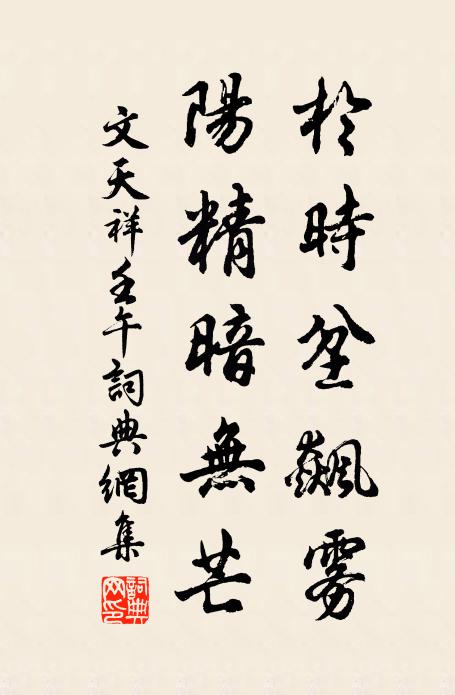 於時坌飆雾
陽精暗無芒
文天祥壬午詞典網集
詞典网印